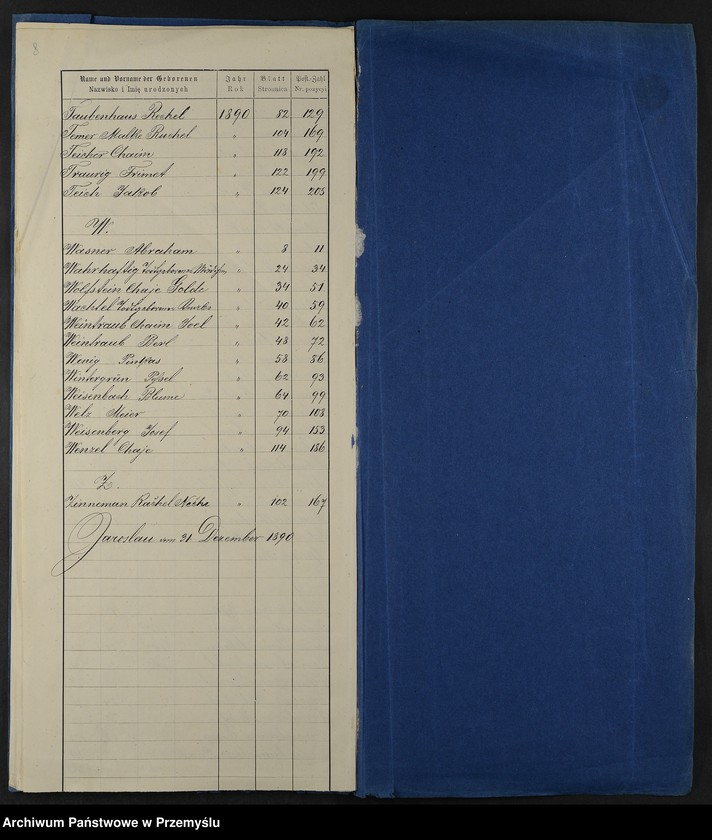 8
Name und Vorname der Geborenen Jahr Blatt Post-Zahl
Nazwisko i Imię urodzonych Rok Stronnica Nr. pozycyi
Taubenhaus Rechel 1890 82 129
Temer Malke Ruchel " 104 169
Teicher Chaim " 118 192
Traurig Frimet " 122 199
Teich Jakob " 124 205
W.
Wasner Abraham " 8 11
Wahrhaftig " 24 34
Wolfstein Chaje Golde " 34 51
Wachtel " 40 59
Weintraub Chaim Joel " 42 62
Weintraub Berl " 48 72
Wenig Pinkas " 58 86
Wintergrün " 62 93
Weisenbach Blume " 64 99
Welz Meier " 70 108
Weisenberg Josef " 94 153
Wenzel Chaje " 114 186
Z.
Zinneman Rachel Neche " 102 167
Jaroslau am 31. Dezember 1890
Archiwum Państwowe w Przemyślu